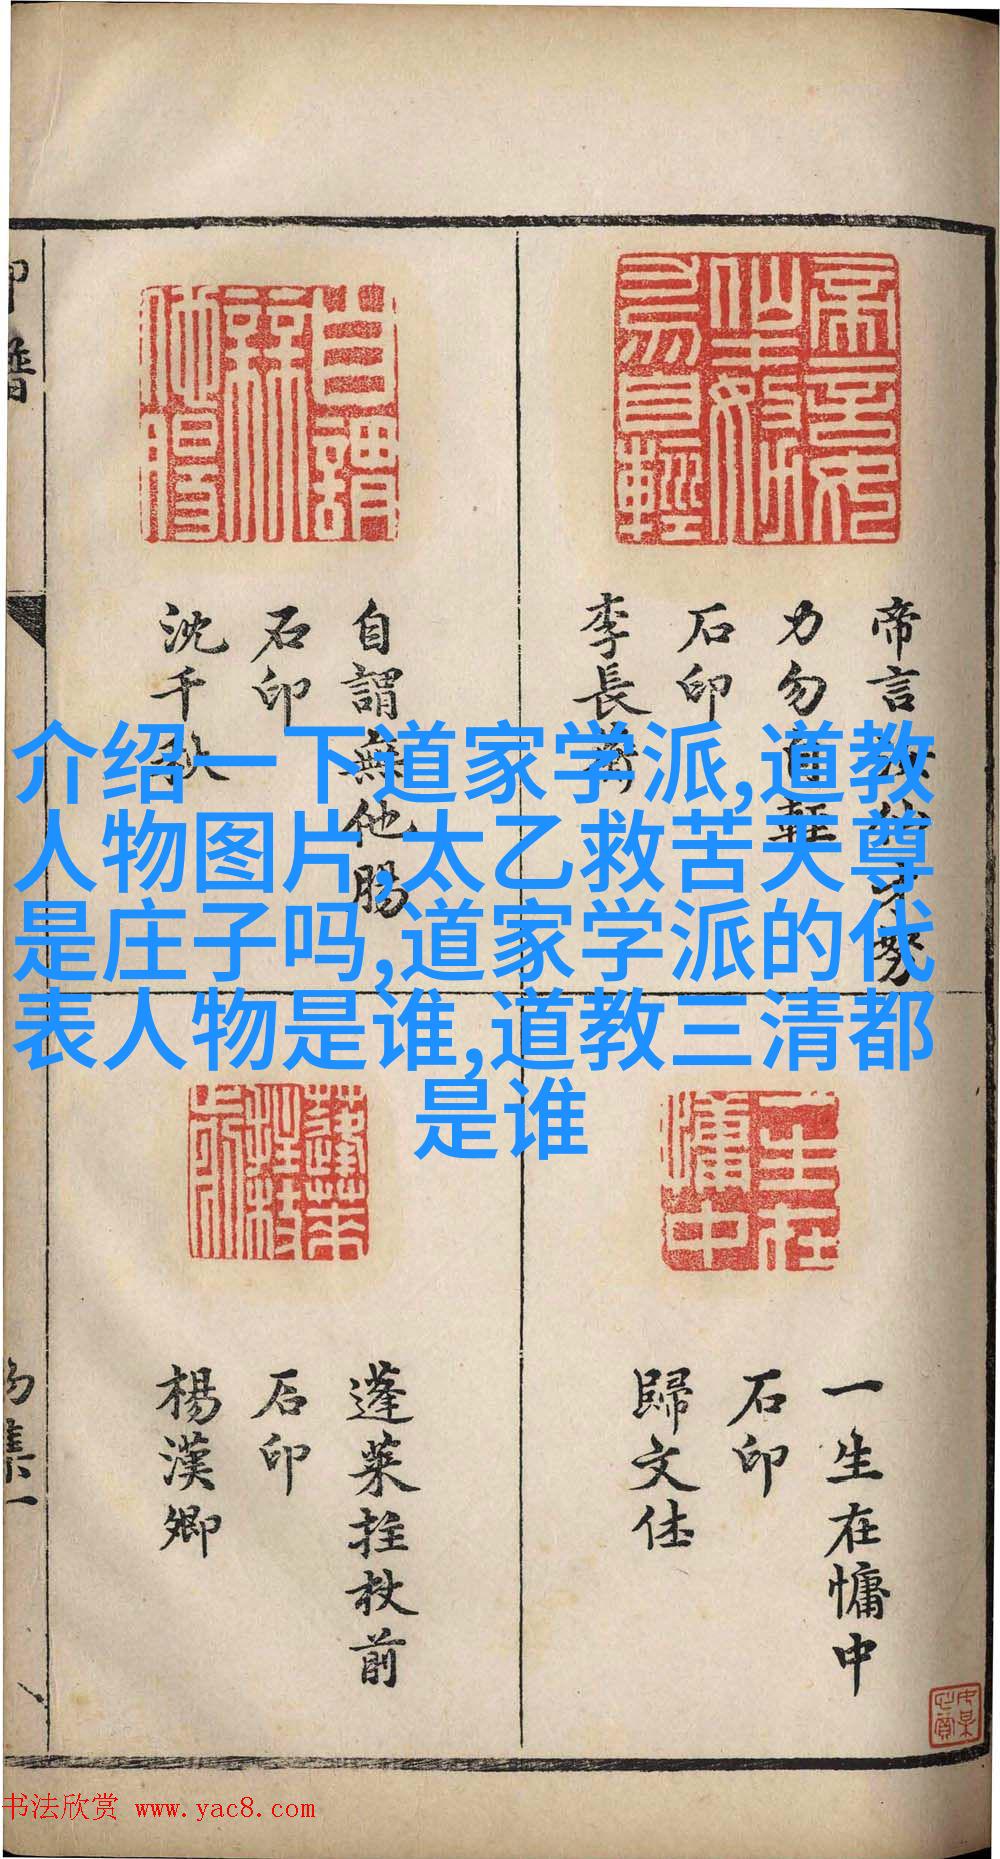 介绍一下道家学派,道教
人物图片,太乙救苦天尊
是庄子吗,道家学派的代
表人物是谁,道教三清都
是谁
帝言
力勿自輕
石印
李長
自謂無他腸
石印
沈千秋
一生在慵中
石印
歸文休
蓬萊拄杖前
石印
楊漢卿
书法欣赏 www.yac8.com